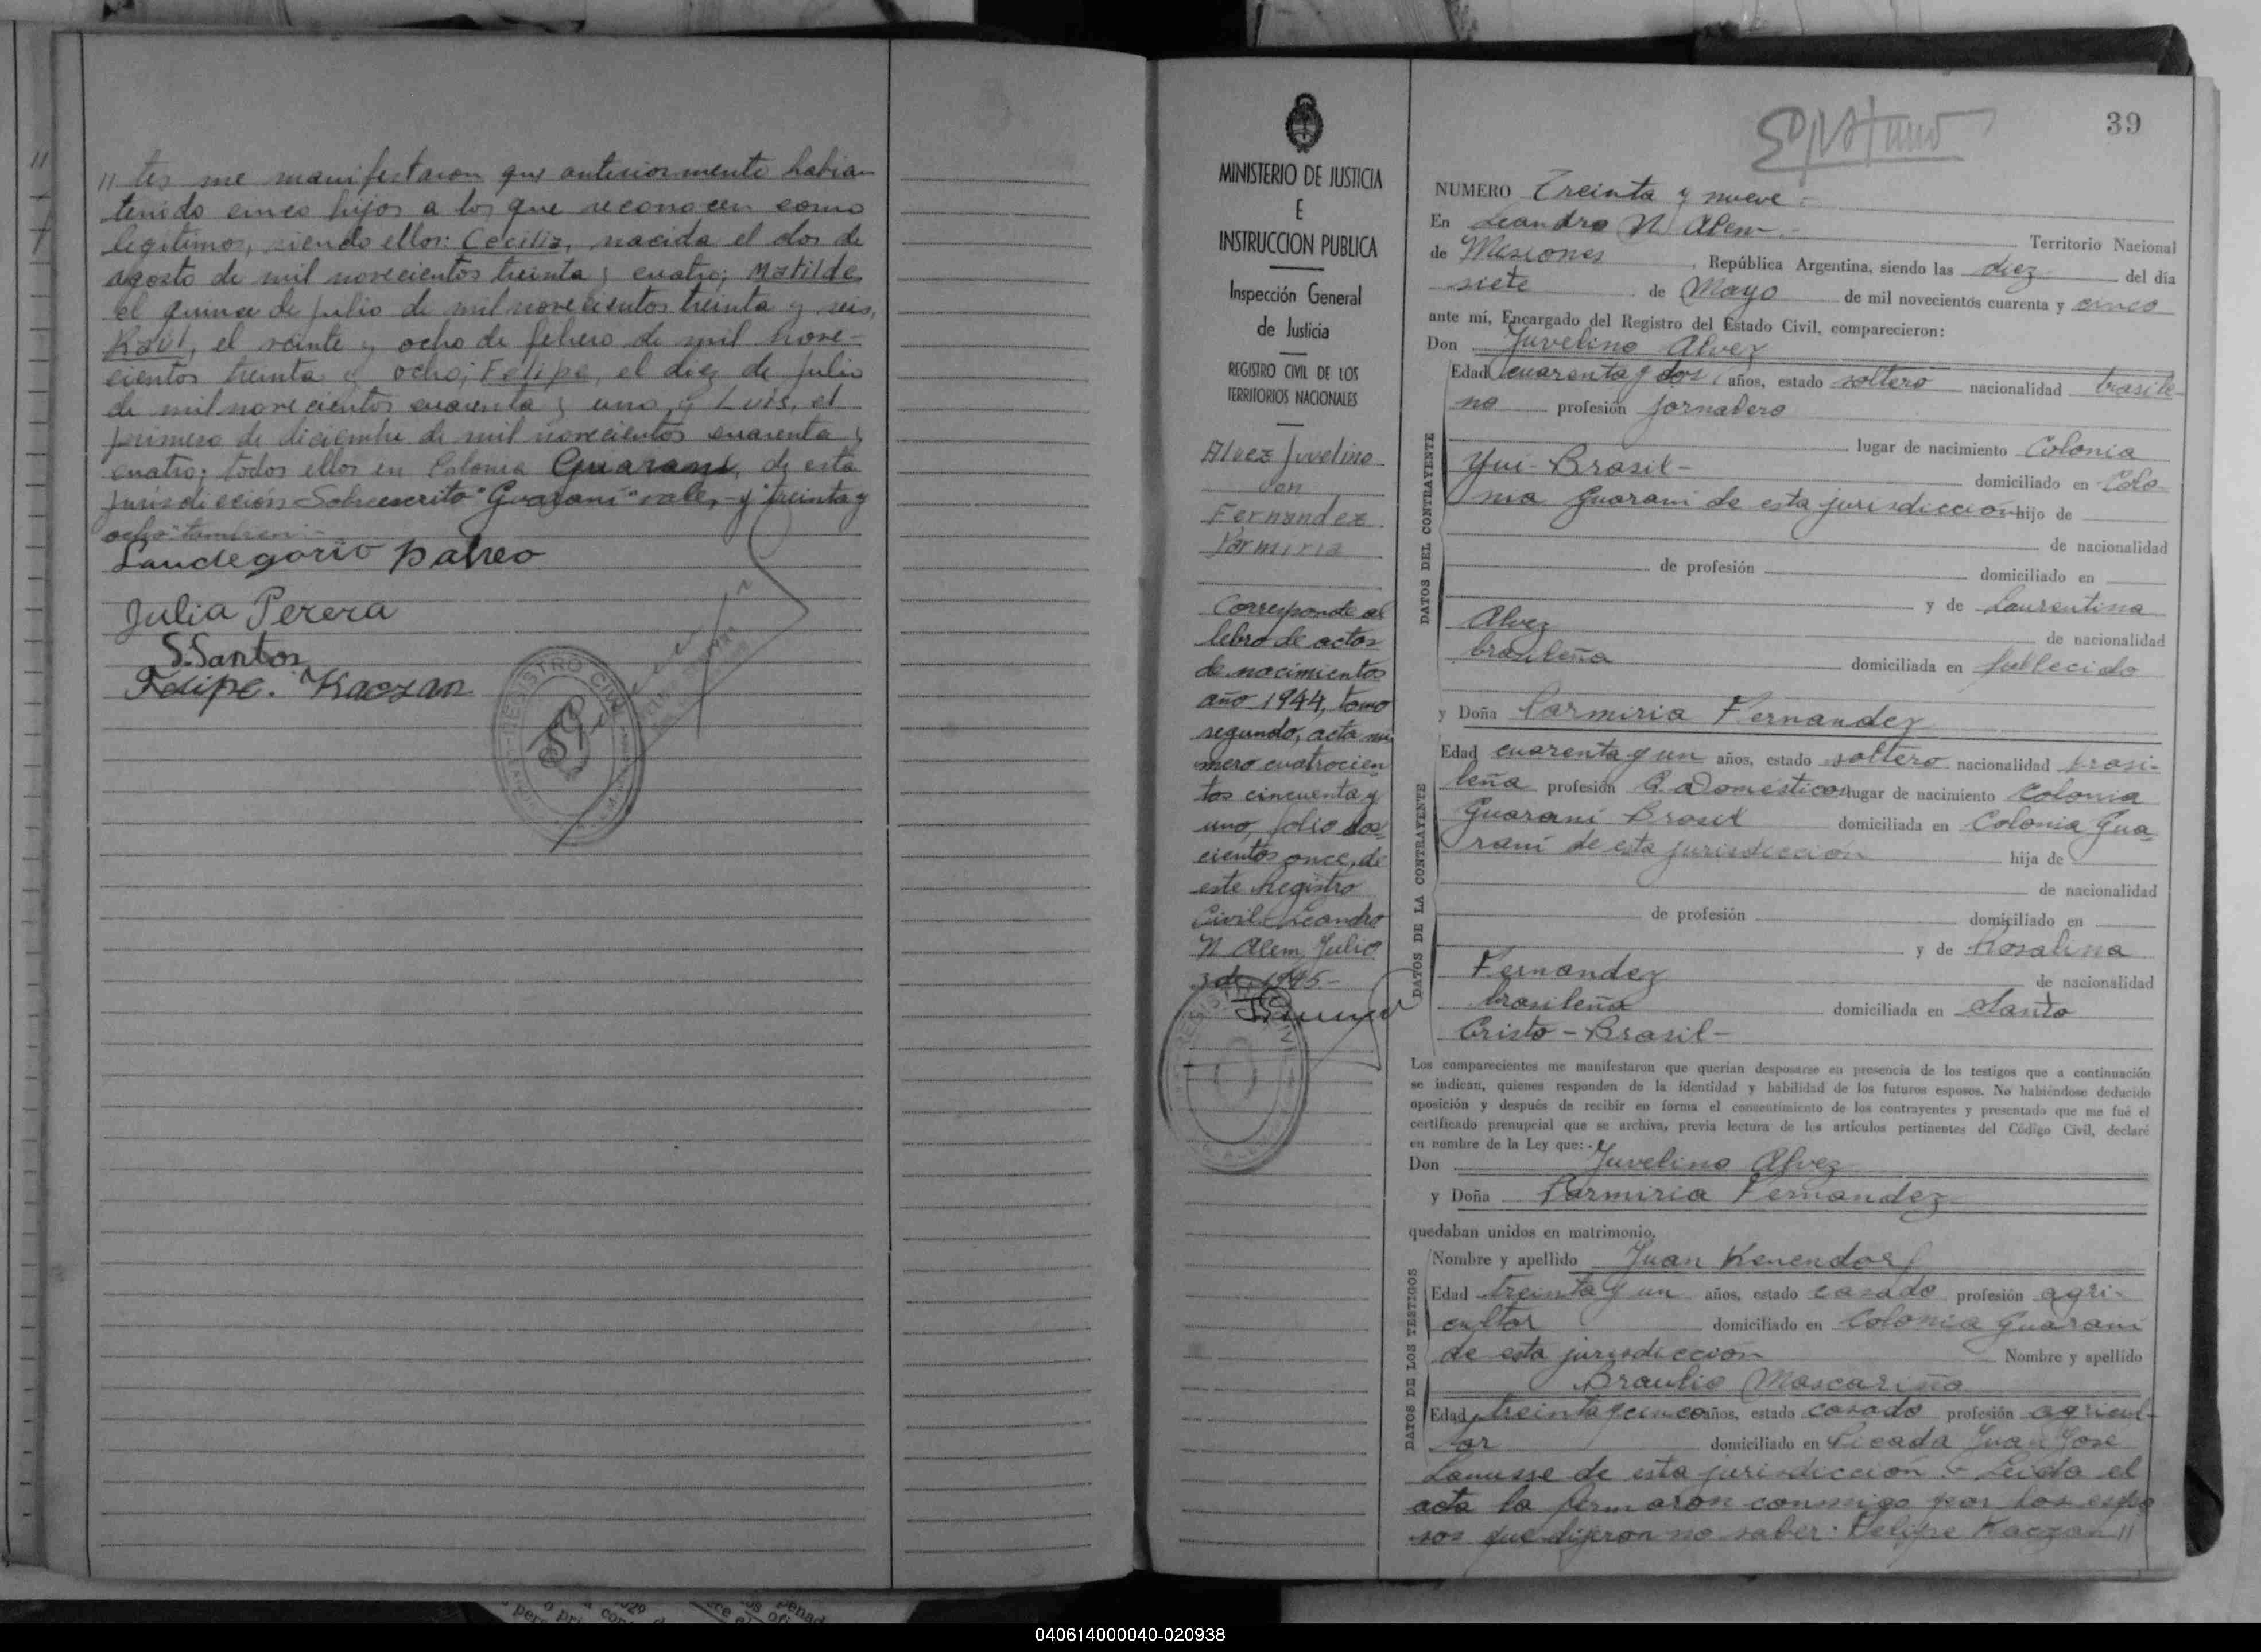 // tes me manifestaron que anteriormente habian
tenido cinco hijos a los que reconocen como
legitimos, siendo ellos: Cecilia, nacida el dos de
agosto de mil novecientos treinta y cuatro; Matilde
el quince de julio de mil novecientos treinta y seis,
Raul, el veinte y ocho de febrero de mil nove-
cientos treinta y ocho; Felipe, el diez de julio
de mil novecientos cuarenta y uno, y Luis, el
primero de diciembre de mil novecientos cuarenta y
cuatro; todos ellos en Colonia Guarani, de esta
jurisdiccion Sobreescrito "Guarani" vale, y "treinta y
ocho" tambien.-
Laudegario
Julia Perera
S. Santos
Felipe Kaczan
MINISTERIO DE JUSTICIA
E
INSTRUCCION PUBLICA
Inspección General
de Justicia
REGISTRO CIVIL DE LOS
TERRITORIOS NACIONALES
Alvez Juvelino
con
Fernandez
Parmiria
Corresponde al
libro de actas
de nacimientos
año 1944, tomo
segundo, acta nu
mero cuatrocien
tos cincuenta y
uno, folio dos
cientos once, de
este Registro
Civil. Leandro
N Alem, Julio
3 de 1945.-
39
NUMERO Treinta y nueve.-
En Leandro N. Alem.- Territorio Nacional
de Misiones, República Argentina, siendo las diez del día
siete de Mayo de mil novecientos cuarenta y cinco
ante mí, Encargado del Registro del Estado Civil, comparecieron:
Don Juvelino Alvez
DATOS DEL CONTRAYENTE
Edad cuarenta y dos años, estado soltero nacionalidad brasile-
no profesión jornalero
lugar de nacimiento Colonia
Yui-Brasil- domiciliado en Colo
nia Guarani de esta jurisdiccion hijo de
de nacionalidad
de profesión domiciliado en
y de Laurentina
Alvez de nacionalidad
brasileña domiciliada en fallecido
y Doña Parmiria Fernandez
DATOS DE LA CONTRAYENTE
Edad cuarenta y un años, estado soltero nacionalidad brasi-
leña profesión Q. Domésticos lugar de nacimiento Colonia
Guarani Brasil domiciliada en Colonia Gua
rani de esta jurisdiccion hija de
de nacionalidad
de profesión domiciliado en
y de Rosalina
Fernandez de nacionalidad
brasileña domiciliada en Santo
Cristo - Brasil -
Los comparecientes me manifestaron que querían desposarse en presencia de los testigos que a continuación
se indican, quienes responden de la identidad y habilidad de los futuros esposos. No habiéndose deducido
oposición y después de recibir en forma el consentimiento de los contrayentes y presentado que me fué el
certificado prenupcial que se archiva, previa lectura de los artículos pertinentes del Código Civil, declaré
en nombre de la Ley que:-
Don Juvelino Alvez
y Doña Parmiria Fernandez
quedaban unidos en matrimonio.
DATOS DE LOS TESTIGOS
Nombre y apellido Juan Kenendorf
Edad treinta y un años, estado casado profesión agri-
cultor domiciliado en Colonia Guarani
de esta jurisdiccion Nombre y apellido
Braulio Mascariño
Edad treinta y cinco años, estado casado profesión agricul-
tor domiciliado en Picada Juan Jose
Lanusse de esta jurisdiccion.- Leida el
acta la firmaron conmigo por los espo
sos que dijeron no saber: Felipe Kaczan //
040614000040-020938